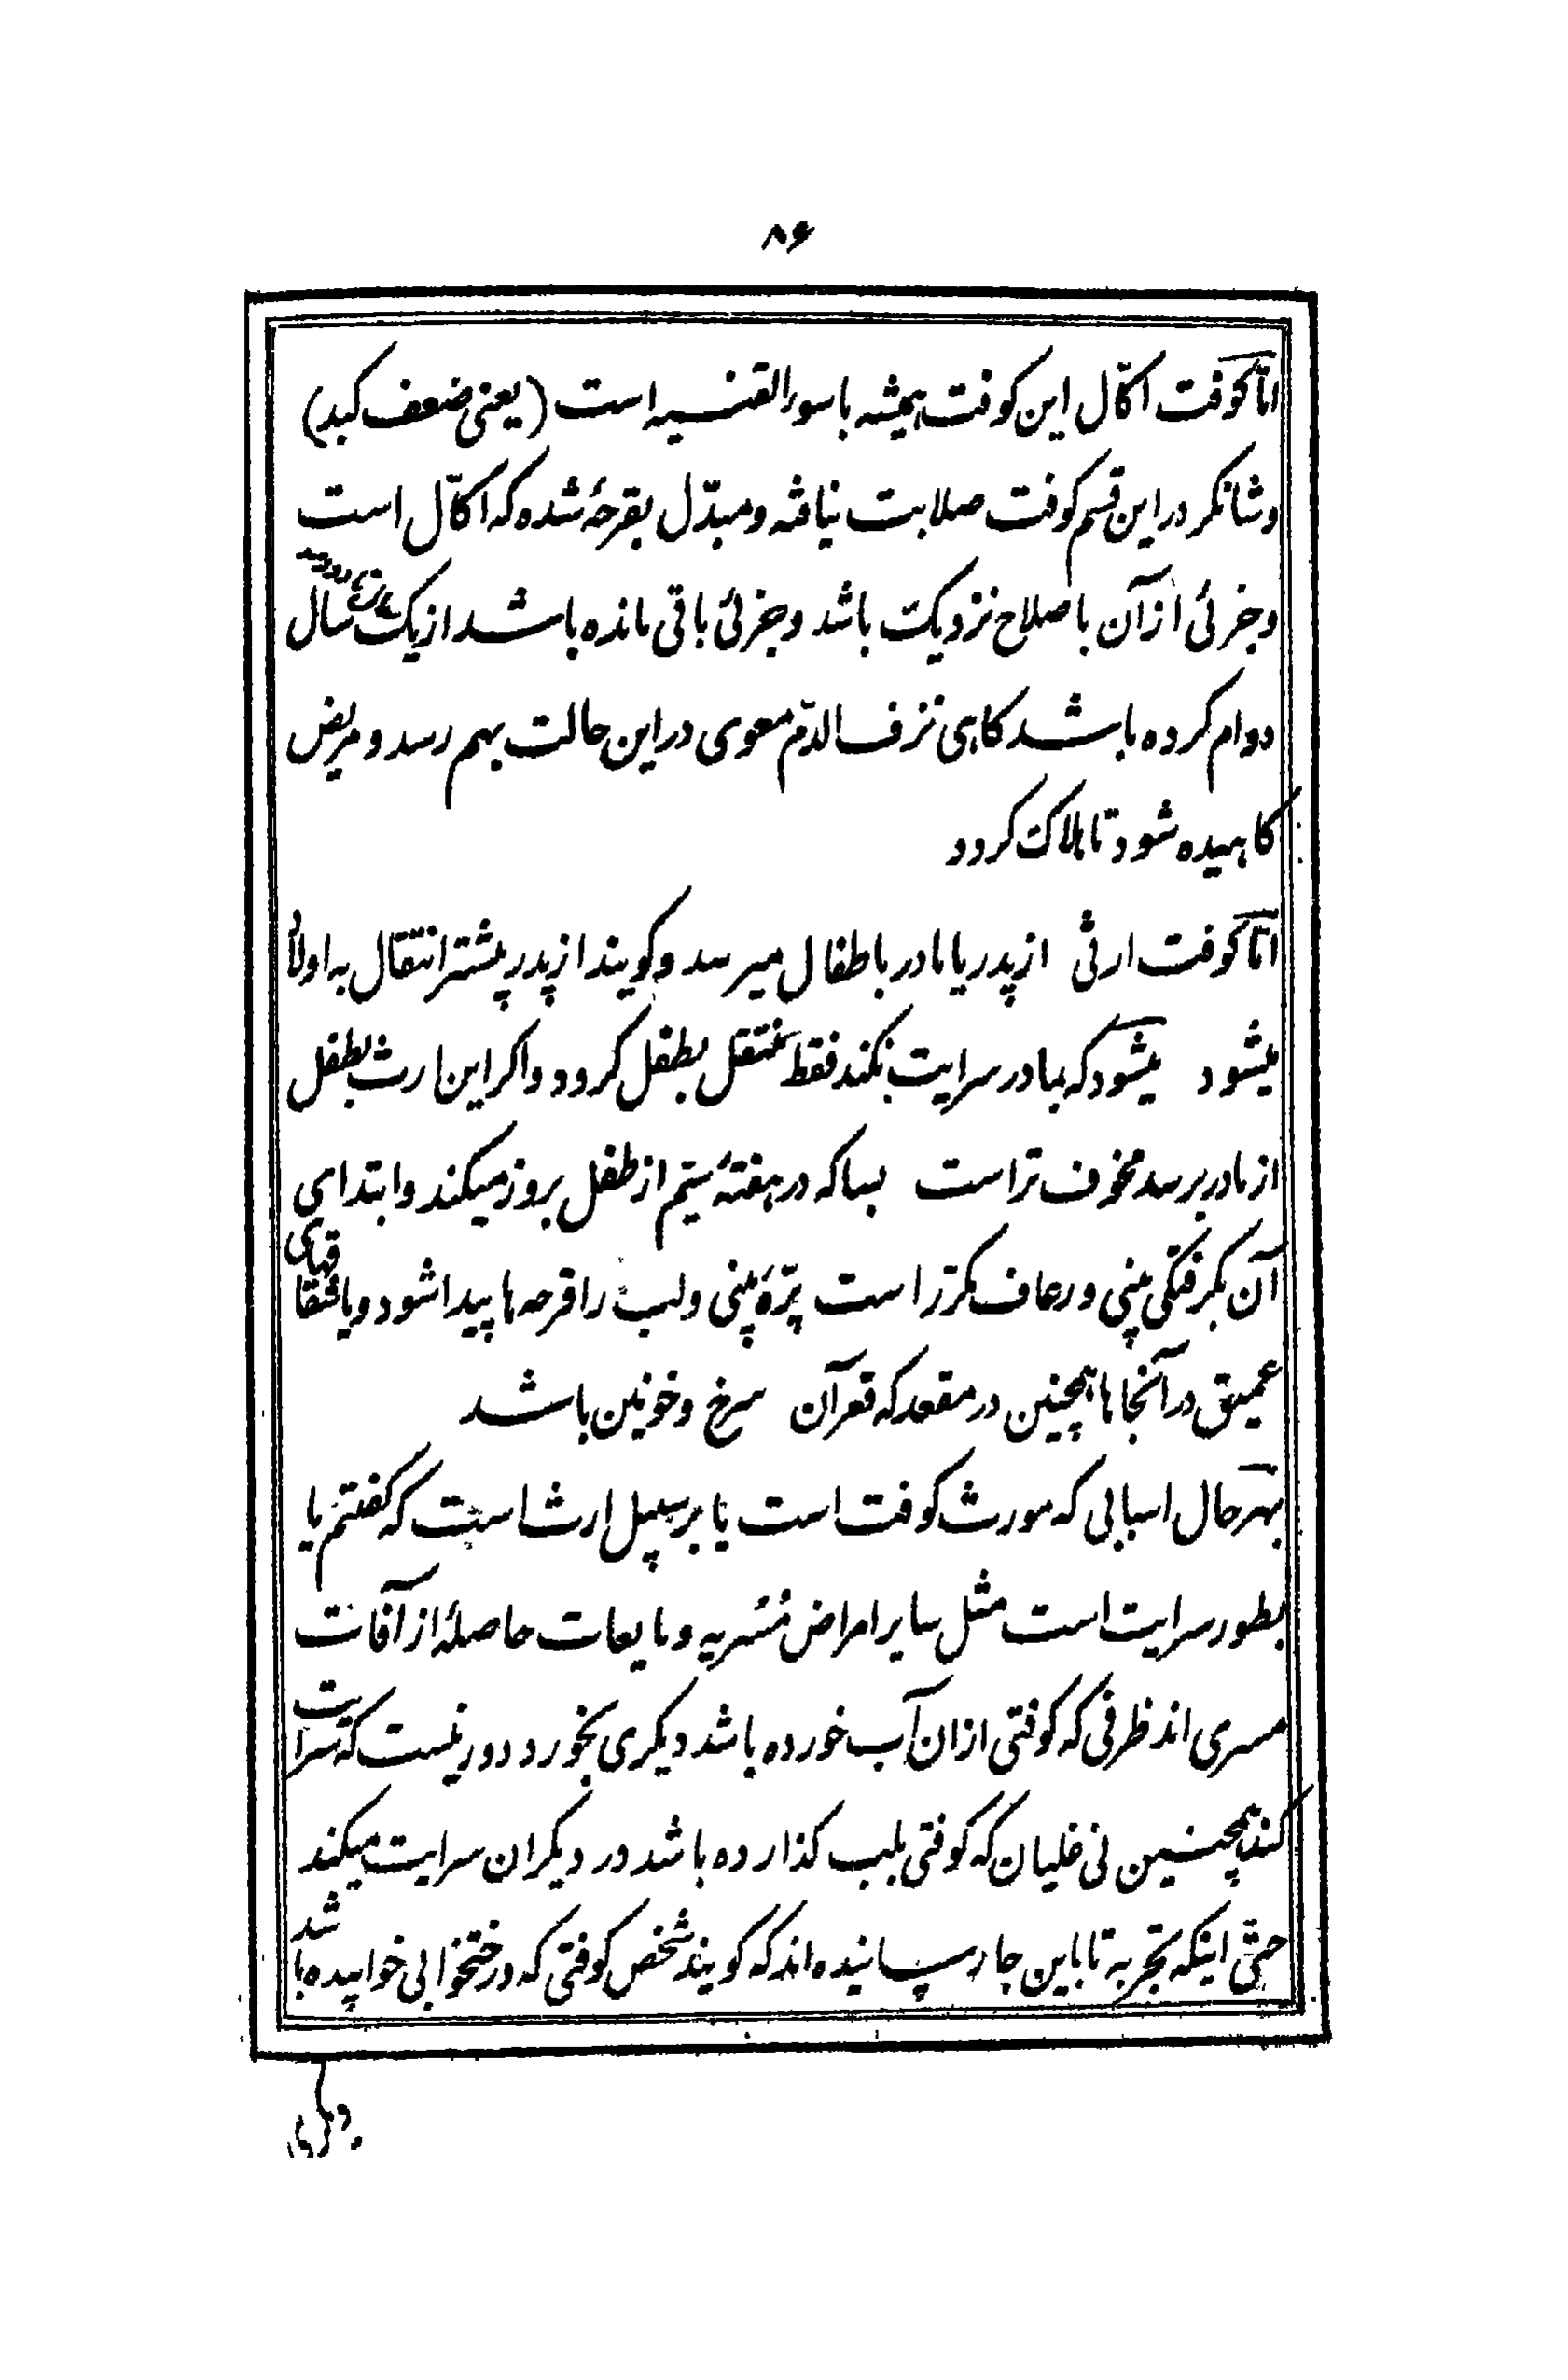 ۸۶
امّا کوفت اکّال این کوفت همیشه با سوء القنیه است (یعنی ضعف کبد)
و شانکر در این قسم کوفت صلابت نیافته و مبدّل بقرحهٔ شده که اکّال است
و جزئی از آن باصلاح نزدیک باشد و جزئی باقی مانده باشد از یک سال
دوام کرده باشد کاهی نزف الدّم معوی در این حالت بهم رسد و مریض
کاهیده شود تا هلاک کردد
امّا کوفت ارثی از پدر یا مادر باطفال میرسد و کویند از پدر بیشتر انتقال به اولاد
میشود میشود که بمادر سرایت نکند فقط منتقل بطفل کردد و اکر این ارث بطفل
از مادر برسد مخوف تر است بسا که در هفتهٔ سیّم از طفل بروز میکند و ابتدای
آن بکرفتکی بینی و رعاف مکرّر است پرّهٔ بینی و لب را قرحه ها پیدا شود و یا شقاقهای
عمیق در آنجاها همچنین در مقعد که قعر آن سرخ و خونین باشد
بهر حال اسبابی که مورث کوفت است یا بر سبیل ارث است که کفتم یا
بطور سرایت است مثل سایر امراض مُسریه و مایعات حاصلهٔ از آفات
مسری اند ظرفی که کوفتی ازان آب خورده باشد دیکری بخورد دور نیست که سرایت
کند همچنین نی غلیان که کوفتی بلب کذارده باشد در دیکران سرایت میکند
حتّی اینکه تجربه تا باین جا رسانیده اند که کویند شخص کوفتی که در رختخوابی خوابیده باشد